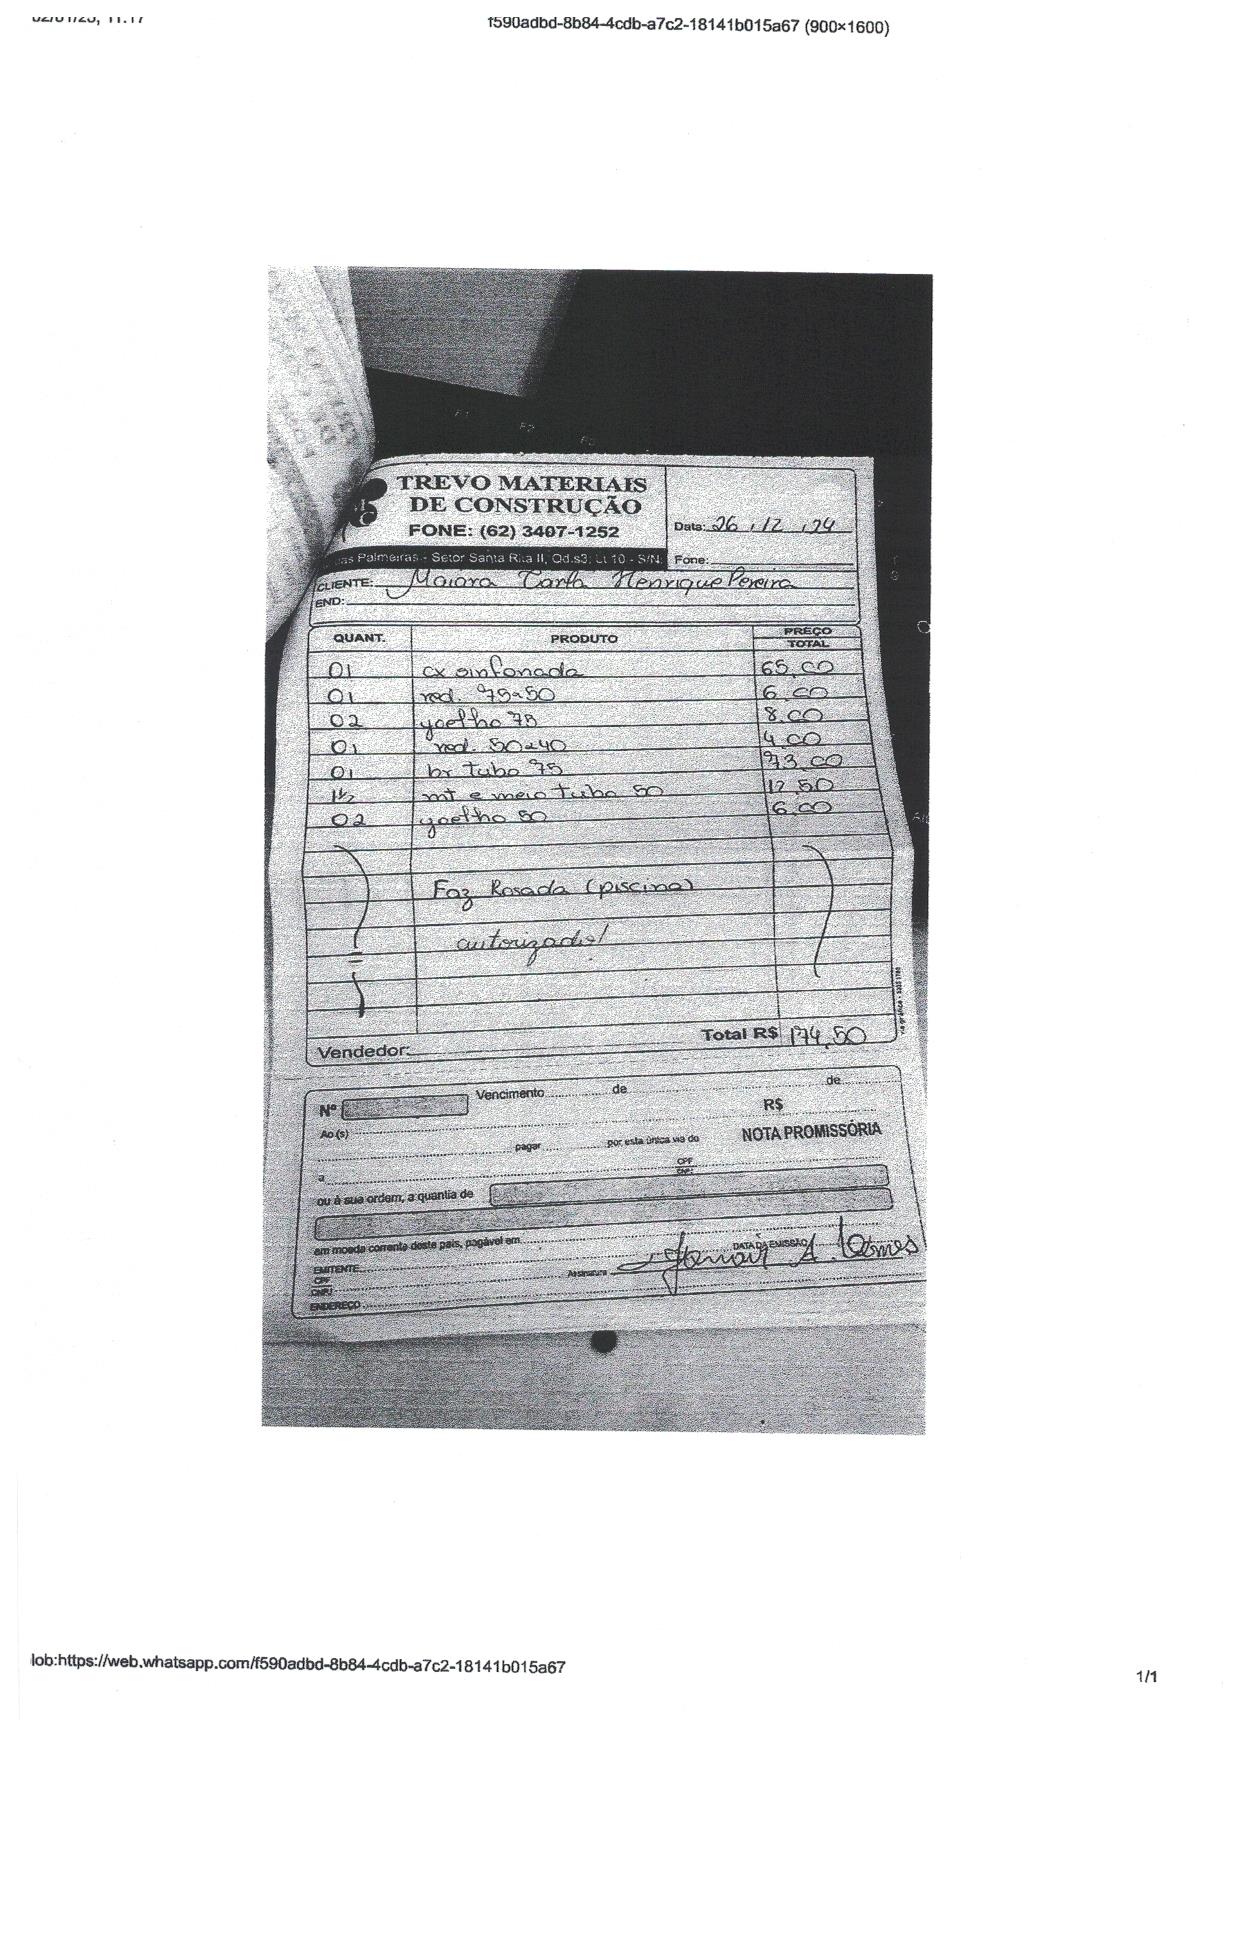 02/01/25, 11:17
f590adbd-8b84-4cdb-a7c2-18141b015a67 (900×1600)
F1
F2
F3
TREVO MATERIAIS
DE CONSTRUÇÃO
FONE: (62) 3407-1252
Data: 26 / 12 / 24
as Palmeiras - Setor Santa Rita II, Qd.s3, Lt 10 - S/N
Fone:
CLIENTE: Maiara Carla Henrique Pereira
END:
QUANT. PRODUTO PREÇO
TOTAL
01 cx sinfonada 65,00
01 red. 75x50 6,00
02 joelho 75 8,00
01 red. 50x40 4,00
01 br tubo 75 73,00
1½ mt e meio tubo 50 12,50
02 joelho 50 6,00
Faz Rosada (piscina)
autorizado!
Total R$ 174,50
Vendedor:
Nº Vencimento de de
R$
Ao(s)
pagar por esta única via do NOTA PROMISSÓRIA
a CPF
CNPJ
ou à sua ordem, a quantia de
em moeda corrente deste país, pagável em
DATA DA EMISSÃO
EMITENTE
Assinatura
CPF
CNPJ
ENDEREÇO
lob:https://web.whatsapp.com/f590adbd-8b84-4cdb-a7c2-18141b015a67
1/1